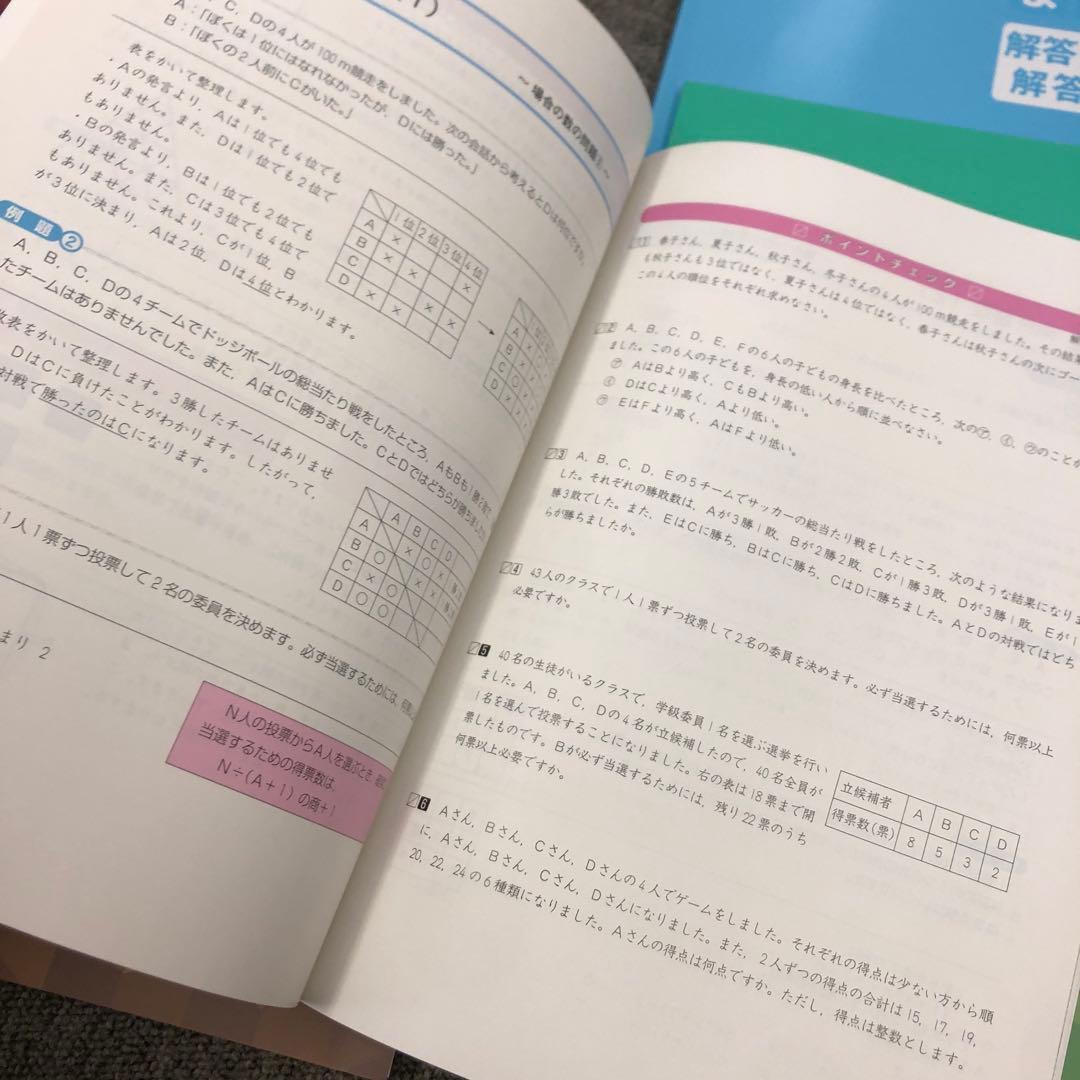 〜場合の数の問題1〜
C、Dの4人が100m競走をしました。次の会話から考えるとDは何位ですか。
A:「ぼくは1位にはなれなかったが、Dには勝った。」
B:「ぼくの2人前にCがいた。」
表をかいて整理します。
・Aの発言より、Aは1位でも4位でも
ありません。また、Dは1位でも2位で
もありません。
・Bの発言より、Bは1位でも2位でも
ありません。また、Cは3位でも4位で
もありません。これより、Cが1位、B
が3位に決まり、Aは2位、Dは4位とわかります。
1位 2位 3位 4位
A × ×
B × ×
C × ×
D × ×
例題 2
A、B、C、Dの4チームでドッジボールの総当たり戦をしたところ、AもBも1勝2敗で
たチームはありませんでした。また、AはCに勝ちました。CとDではどちらが勝ちましたか
表をかいて整理します。3勝したチームはありませ
DはCに負けたことがわかります。したがって、
対戦で勝ったのはCになります。
A B C D
A
B
C
D
1人1票ずつ投票して2名の委員を決めます。必ず当選するためには、何票
まり 2
N人の投票からA人を選ぶとき、
当選するための得票数は、
N÷(A+1)の商+1
解答
解答
ポイントチェック
春子さん、夏子さん、秋子さん、冬子さんの4人が100m競走をしました。その結果
も秋子さんも3位ではなく、夏子さんは4位ではなく、春子さんは秋子さんの次にゴー
この4人の順位をそれぞれ求めなさい。
2 A、B、C、D、E、Fの6人の子どもの身長を比べたところ、次の㋐、㋑、㋒のことが
ました。この6人の子どもを、身長の低い人から順に並べなさい。
㋐ AはBより高く、CもBより高い。
㋑ DはCより高く、Aより低い。
㋒ EはFより高く、AはFより低い。
3 A、B、C、D、Eの5チームでサッカーの総当たり戦をしたところ、次のような結果になりま
した。それぞれの勝敗数は、Aが3勝1敗、Bが2勝2敗、Cが1勝3敗、Dが3勝1敗、Eが1
勝3敗でした。また、EはCに勝ち、BはCに勝ち、CはDに勝ちました。AとDの対戦ではどち
らが勝ちましたか。
4 43人のクラスで1人1票ずつ投票して2名の委員を決めます。必ず当選するためには、何票以上
必要ですか。
5 40名の生徒がいるクラスで、学級委員1名を選ぶ選挙を行い
ました。A、B、C、Dの4名が立候補したので、40名全員が
1名を選んで投票することになりました。右の表は18票まで開
票したものです。Bが必ず当選するためには、残り22票のうち
何票以上必要ですか。
立候補者 A B C D
得票数(票) 8 5 3 2
6 Aさん、Bさん、Cさん、Dさんの4人でゲームをしました。それぞれの得点は少ない方から順
に、Aさん、Bさん、Cさん、Dさんになりました。また、2人ずつの得点の合計は15、17、19、
20、22、24の6種類になりました。Aさんの得点は何点ですか。ただし、得点は整数とします。